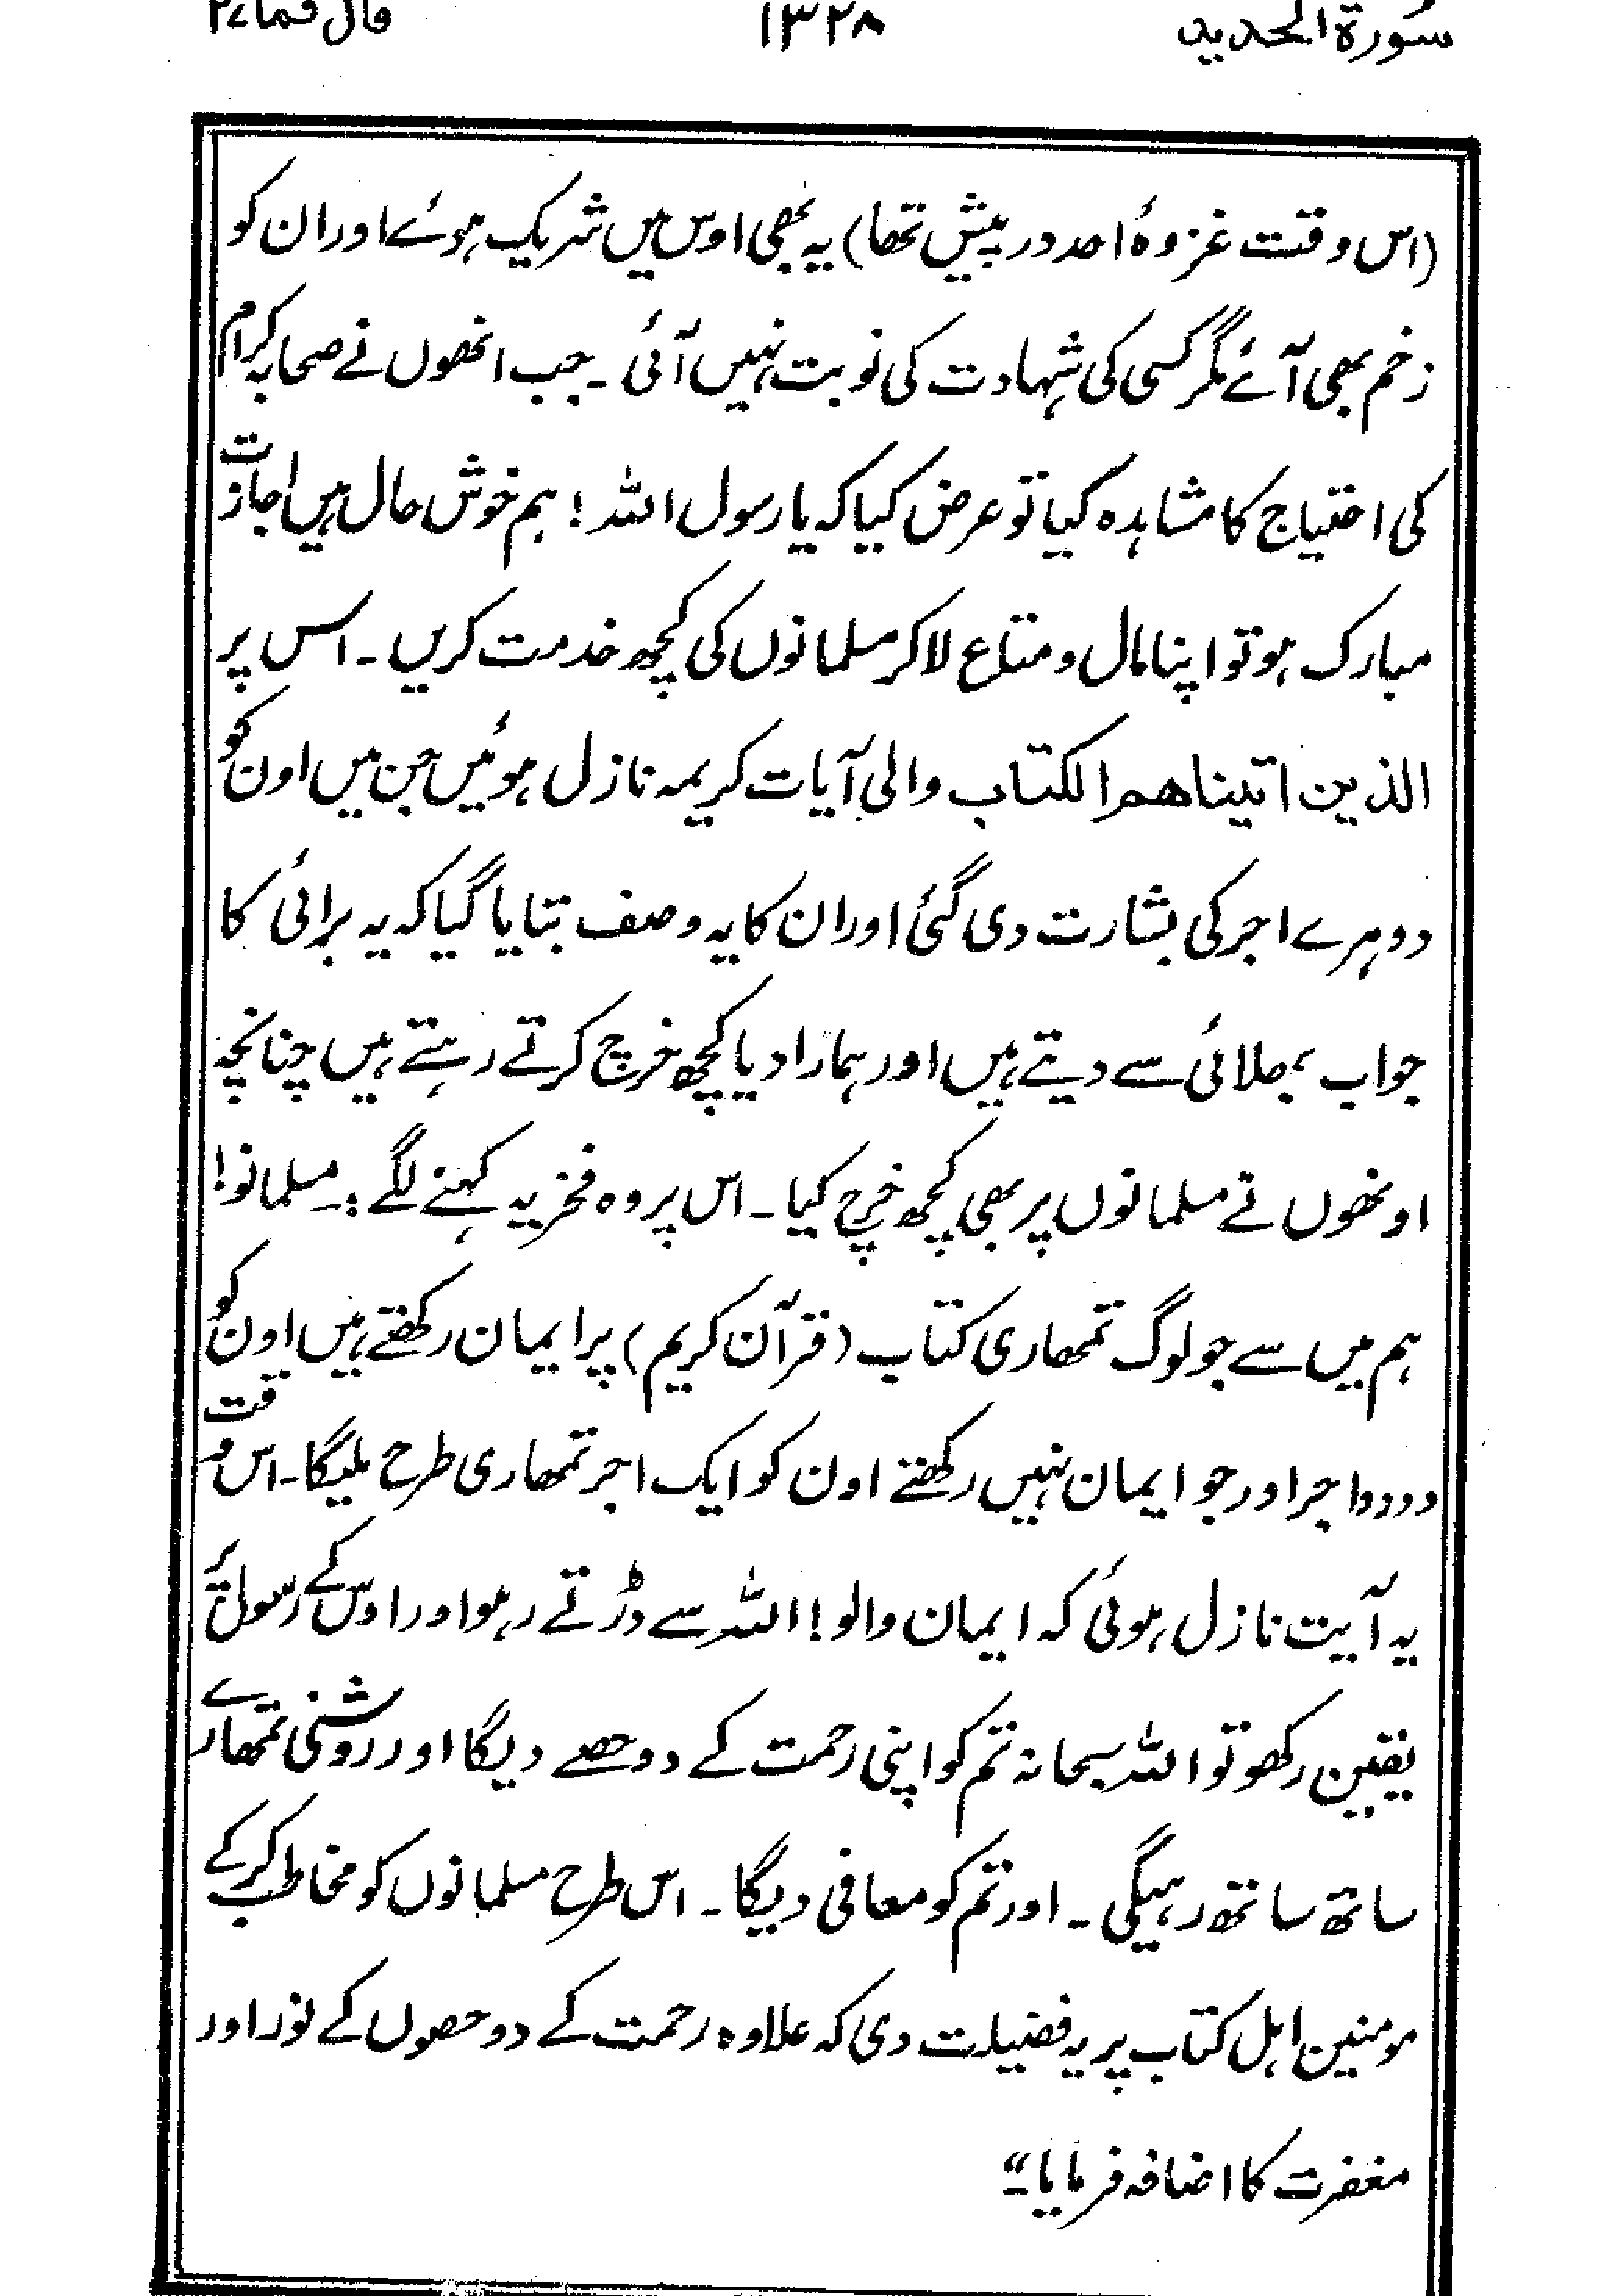 سُورة الحديد ١٣٢٨ قال فما ٢٧
(اس وقت غزوۂ احد درپیش تھا) یہ بھی اوس میں شریک ہوئے اور ان کو
زخم بھی آئے مگر کسی کی شہادت کی نوبت نہیں آئی ۔ جب انھوں نے صحابہ کرام
کی احتیاج کا مشاہدہ کیا تو عرض کیا کہ یا رسول اللہ ! ہم خوش حال ہیں اجازت
مبارک ہو تو اپنا مال و متاع لا کر مسلمانوں کی کچھ خدمت کریں ۔ اس پر
الذین اتیناھم الکتاب والی آیات کریمہ نازل ہوئیں جن میں اون کو
دوہرے اجر کی بشارت دی گئی اور ان کا یہ وصف بتایا گیا کہ یہ برائی کا
جواب بھلائی سے دیتے ہیں اور ہمارا دیا کچھ خرچ کرتے رہتے ہیں چنانچہ
اونھوں نے مسلمانوں پر بھی کچھ خرچ کیا ۔ اس پر وہ فخریہ کہنے لگے :۔ مسلمانو!
ہم میں سے جو لوگ تمھاری کتاب (قرآن کریم) پر ایمان رکھتے ہیں اون کو
دو دو اجر اور جو ایمان نہیں رکھتے اون کو ایک اجر تمھاری طرح ملیگا ۔ اس وقت
یہ آیت نازل ہوئی کہ ایمان والو! اللہ سے ڈرتے رہو اور اوس کے رسول پر
یقین رکھو تو اللہ سبحانہ تم کو اپنی رحمت کے دو حصے دیگا اور روشنی تمھارے
ساتھ ساتھ رہیگی ۔ اور تم کو معافی دیگا ۔ اس طرح مسلمانوں کو مخاطب کر کے
مومنین اہل کتاب پر یہ فضیلت دی کہ علاوہ رحمت کے دو حصوں کے نور اور
مغفرت کا اضافہ فرمایا ۔"